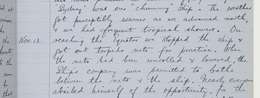 Sydney" was one "chummy" ship. The weather
got perceptibly warmer as we advanced north,
& we had frequent tropical showers. On
Nov. 13. reaching the equator we stopped the ship &
got out torpedo nets for practice. When
the nets had been uncoiled & lowered, the
Ship's company were permitted to bathe
between the nets & the ship. Nearly everyone
availed himself of the opportunity. In the